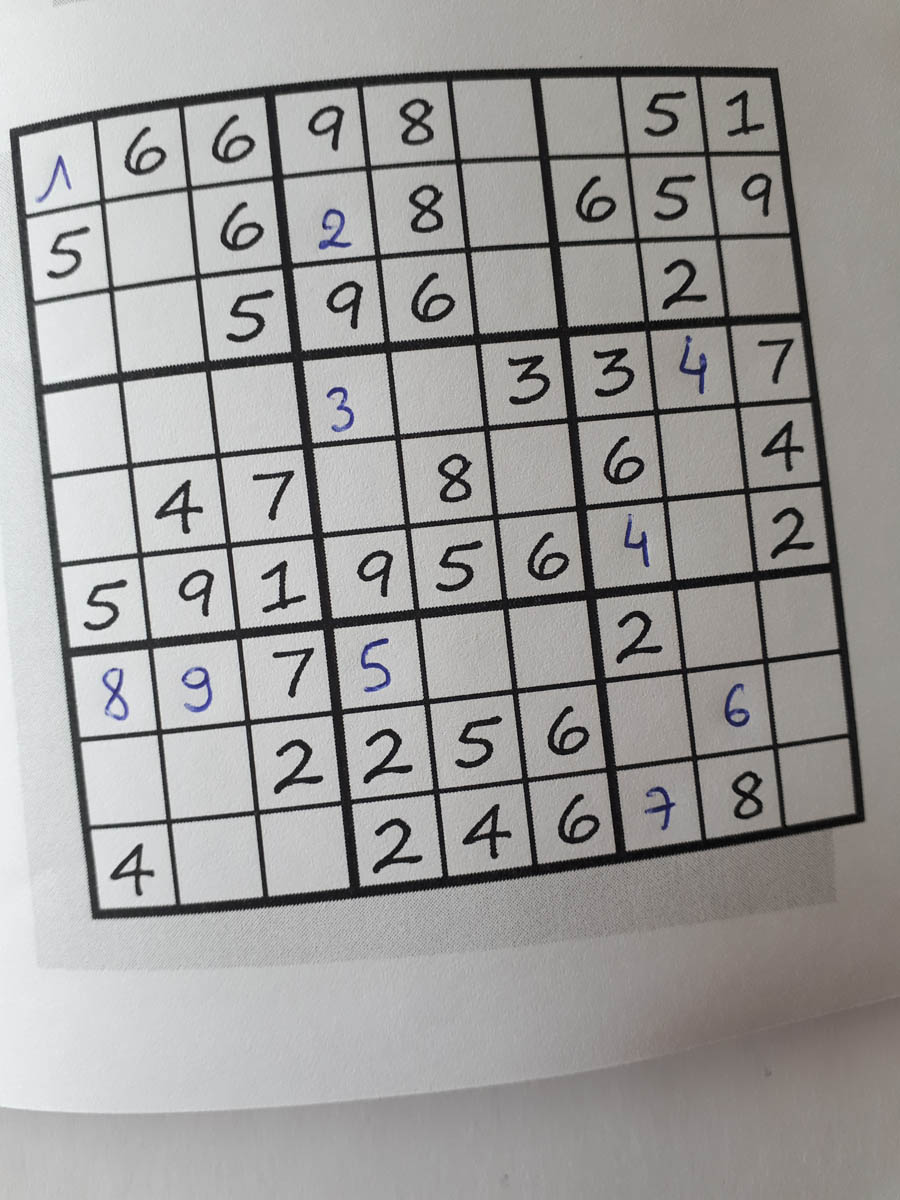 1 6 6 9 8 5 1
5 6 2 8 6 5 9
5 9 6 2
3 3 3 4 7
4 7 8 6 4
5 9 1 9 5 6 4 2
8 9 7 5 2
2 2 5 6 6
4 2 4 6 7 8